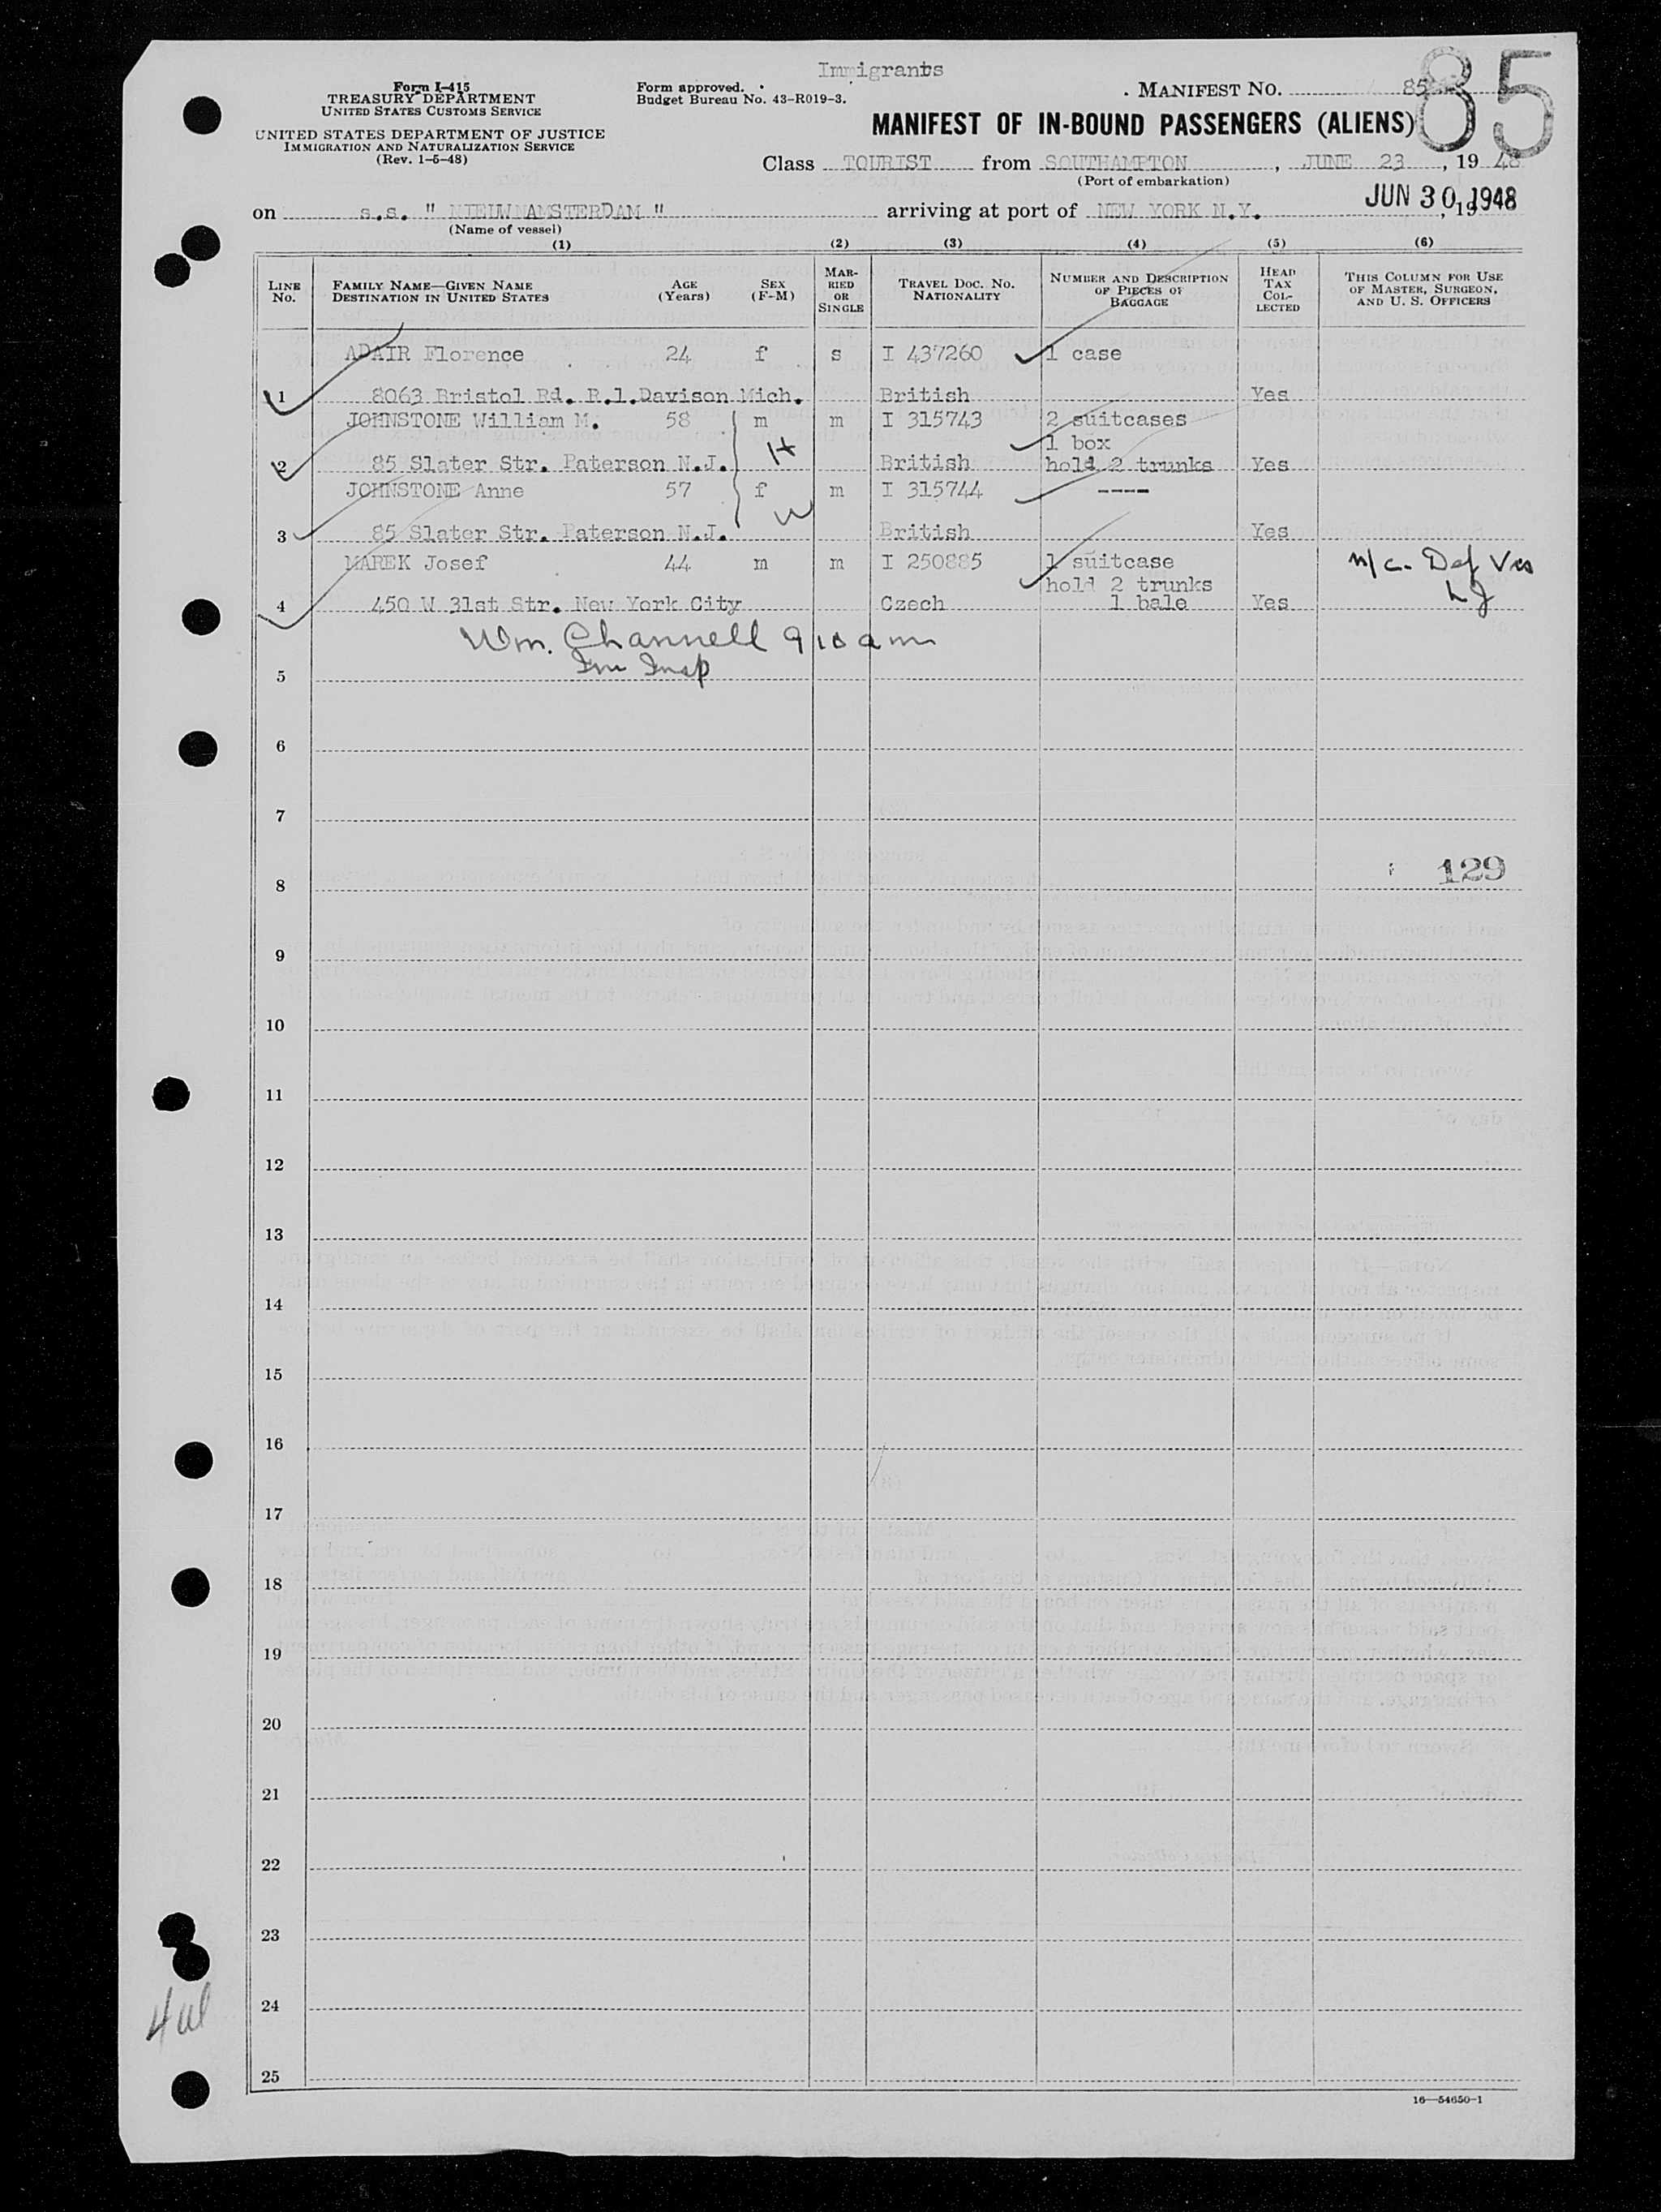 Immigrants
85
Form I-415
TREASURY DEPARTMENT
UNITED STATES CUSTOMS SERVICE
UNITED STATES DEPARTMENT OF JUSTICE
IMMIGRATION AND NATURALIZATION SERVICE
(Rev. 1-5-48)
Form approved.
Budget Bureau No. 43-R019-3.
MANIFEST NO. 85
MANIFEST OF IN-BOUND PASSENGERS (ALIENS)
Class TOURIST from SOUTHAMPTON, JUNE 23, 19 48
(Port of embarkation)
on s.s. " NIEUW AMSTERDAM " arriving at port of NEW YORK N.Y. JUN 30 1948, 19
(Name of vessel)
(1) (2) (3) (4) (5) (6)
LINE No. FAMILY NAME—GIVEN NAME DESTINATION IN UNITED STATES AGE (Years) SEX (F-M) MARRIED OR SINGLE TRAVEL DOC. NO. NATIONALITY NUMBER AND DESCRIPTION OF PIECES OF BAGGAGE HEAD TAX COLLECTED THIS COLUMN FOR USE OF MASTER, SURGEON, AND U. S. OFFICERS
ADAIR Florence 24 f s I 437260 1 case
1 8063 Bristol Rd. R.1.Davison Mich. British Yes
JOHNSTONE William M. 58 m m I 315743 2 suitcases
H 1 box
2 85 Slater Str. Paterson N.J. British hold 2 trunks Yes
JOHNSTONE Anne 57 f m I 315744 ----
W
3 85 Slater Str. Paterson N.J. British Yes
MAREK Josef 44 m m I 250885 1 suitcase n/c. Def Ves
hold 2 trunks
4 450 W 31st Str. New York City Czech 1 bale Yes
Wm. Channell 9 10 am
Im Insp
5
6
7
129
8
9
10
11
12
13
14
15
16
17
18
19
20
21
22
23
24
25
16—54650-1